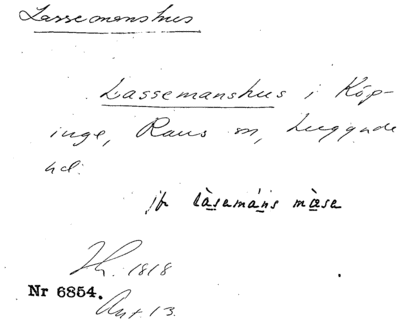 Lassemanshus
Lassemanshus i Köp-
inge, Raus sn, Luggude
hd.
jfr làsamáns mǫsa
Th. 1818
Nr 6854.
Ant. 13.